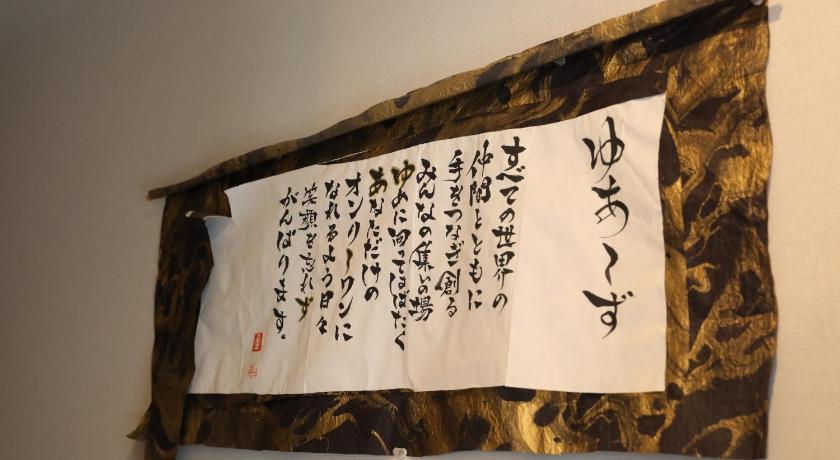 ゆあ〜ず
すべての世界の
仲間とともに
手をつなぎ創る
みんなの集いの場
ゆめに向ってはばたく
あなただけの
オンリーワンに
なれるよう日々
笑顔を忘れず
がんばります。